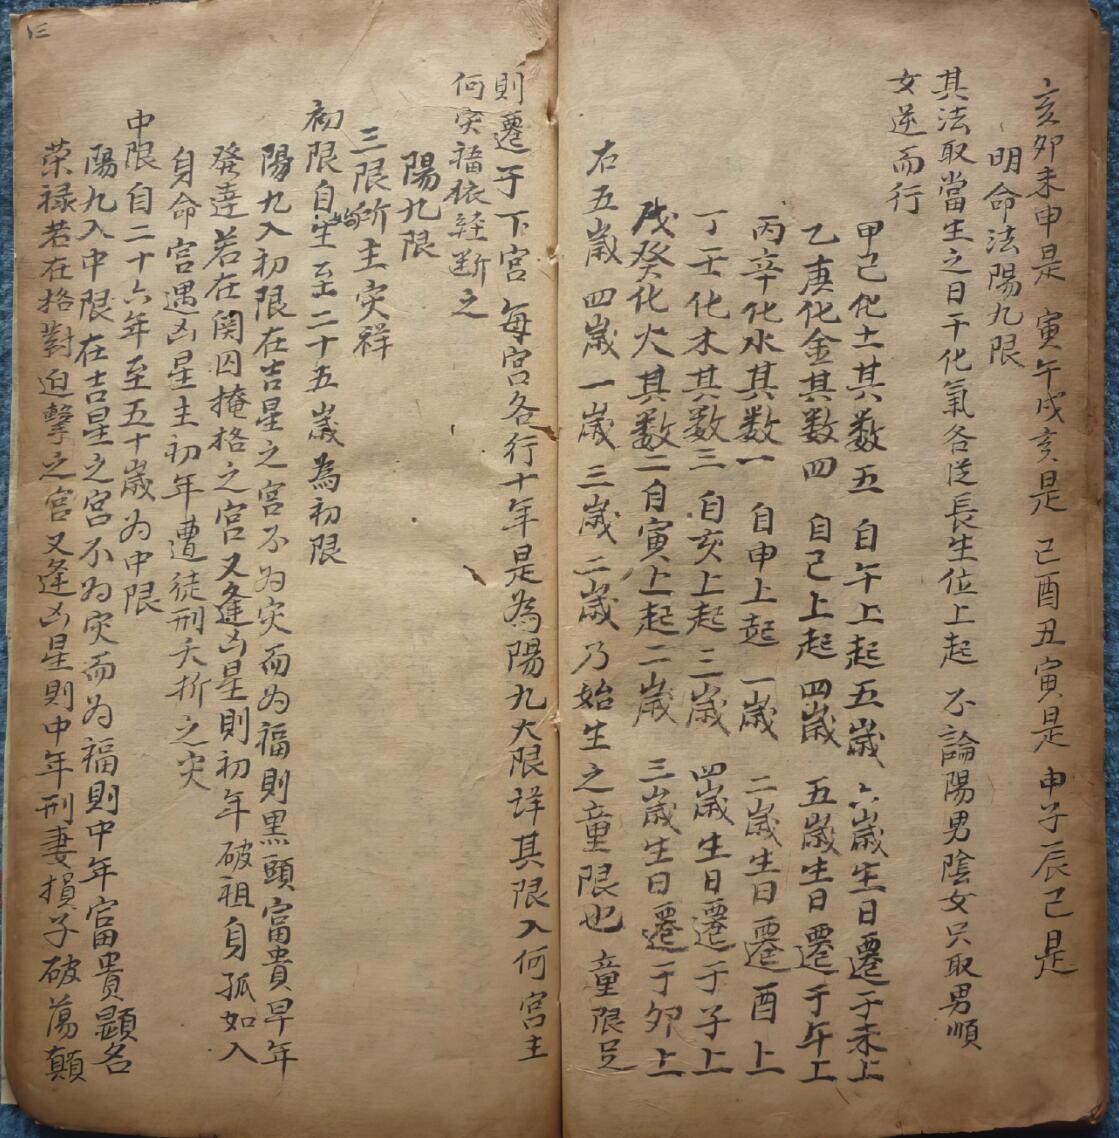 亥卯未申是 寅午戌亥是 己酉丑寅是 申子辰己是
明命法陽九限
其法取當生之日干化氣各從長生位上起 不論陽男陰女只取男順
女逆而行
甲己化土其数五 自午上起五歲 六歲生日遷于未上
乙庚化金其数四 自己上起 四歲 五歲生日遷于午上
丙辛化水其数一 自申上起 一歲 二歲生日遷酉上
丁壬化木其数三 自亥上起 三歲 四歲生日遷于子上
戊癸化火其数二自寅上起二歲 三歲生日遷于卯上
右五歲 四歲 一歲 三歲 二歲 乃始生之童限也 童限足
則遷于下宮 每宮各行十年是為陽九大限詳其限入何宮主
何灾福依経断之
陽九限
三限所主灾祥
初限自始生至二十五歲為初限
陽九入初限在吉星之宮不为灾而为福則黒頭富貴早年
發達若在関囚掩格之宮又逢凶星則初年破祖身孤如入
身命宮遇凶星主初年遭徒刑夭折之灾
中限自二十六年至五十歲为中限
陽九入中限在吉星之宮不为灾而为福則中年富貴顕名
荣禄若在格對迫擊之宮又逢凶星則中年刑妻損子破蕩顛
三